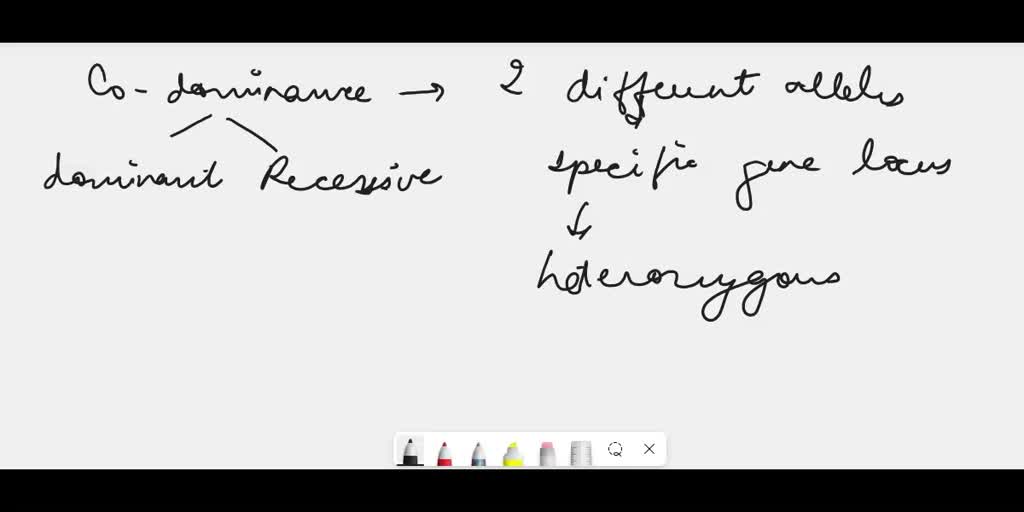 Co-dominance → 2 different alleles
dominant Recessive specific gene locus
↓
heterozygous